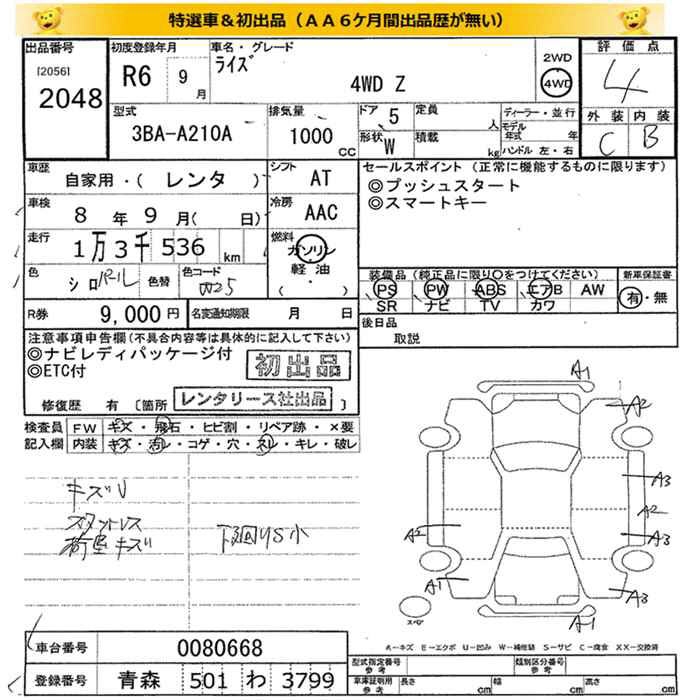 特選車＆初出品（ＡＡ６ケ月間出品歴が無い）
出品番号
[2056]
2048
初度登録年月
R6 9 月
車名・グレード
ライズ
4WD Z
2WD
4WD
評価点
4
外装 内装
C B
型式
3BA-A210A
排気量
1000 CC
ドア 5
形状 W
定員 人
積載 kg
ディーラー・並行
モデル年式 年
ハンドル 左・右
車歴
自家用・( レンタ )
シフト
AT
車検
8 年 9 月( 日)
冷房
AAC
走行
1万3千536 km
燃料
ガソリン
軽油
・( )
色
シロパール
色替
色コード
W25
R券
9,000円
名変通知期限 月 日
セールスポイント（正常に機能するものに限ります）
◎プッシュスタート
◎スマートキー
装備品（純正品に限り〇をつけてください）
PS PW ABS エアB AW
SR ナビ TV カワ
新車保証書
有・無
後日品
取説
注意事項申告欄(不具合内容等は具体的に記入して下さい)
◎ナビレディパッケージ付
◎ETC付
初出品
レンタリース社出品
修復歴 有 〔箇所 〕
検査員記入欄
FW キズ・飛石・ヒビ割・リペア跡・×要
内装 キズ・汚レ・コゲ・穴・スレ・キレ・破レ
キズU
荷室キズ
下廻りS小
A1
A2
A3
A2
A3
A2
A1
A2
A1
スペア
A－キズ E－エクボ U－凹み W－補修跡 S－サビ C－腐食 XX－交換済
車台番号
0080668
登録番号
青森 501 わ 3799
型式指定番号
参考
類別区分番号
参考
車庫証明用
参考
長さ cm
幅 cm
高さ cm